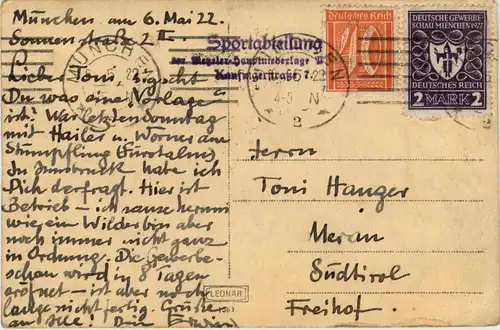 München am 6. Mai 22.
Sonnenstraße 2 II
Lieber Toni, 
Du was eine „Vorlage"
ist? War letzten Sonntag
mit Hailer u. Wörner am
Stümpfling
In Innsbruck habe ich
Dich derfragt. Hier ist
Betrieb – ich sause herum
wie ein Wilder bin aber
noch immer nicht ganz
in Ordnung. Die Gewerbe-
schau wird in 8 Tagen
eröffnet – ist aber noch
lange nicht fertig. Grüße
an alle! Dein
Sportabteilung
der Metzeler-Hauptniederlage
Kaufingerstraße 7.
MÜNCHEN
4-5 N
2
Deutsches Reich
40
DEUTSCHE GEWERBE
SCHAU MÜNCHEN 1922
DEUTSCHES REICH
2 MARK 2
Herrn
Toni Hanger
Meran
Südtirol
Freihof.
LEONAR